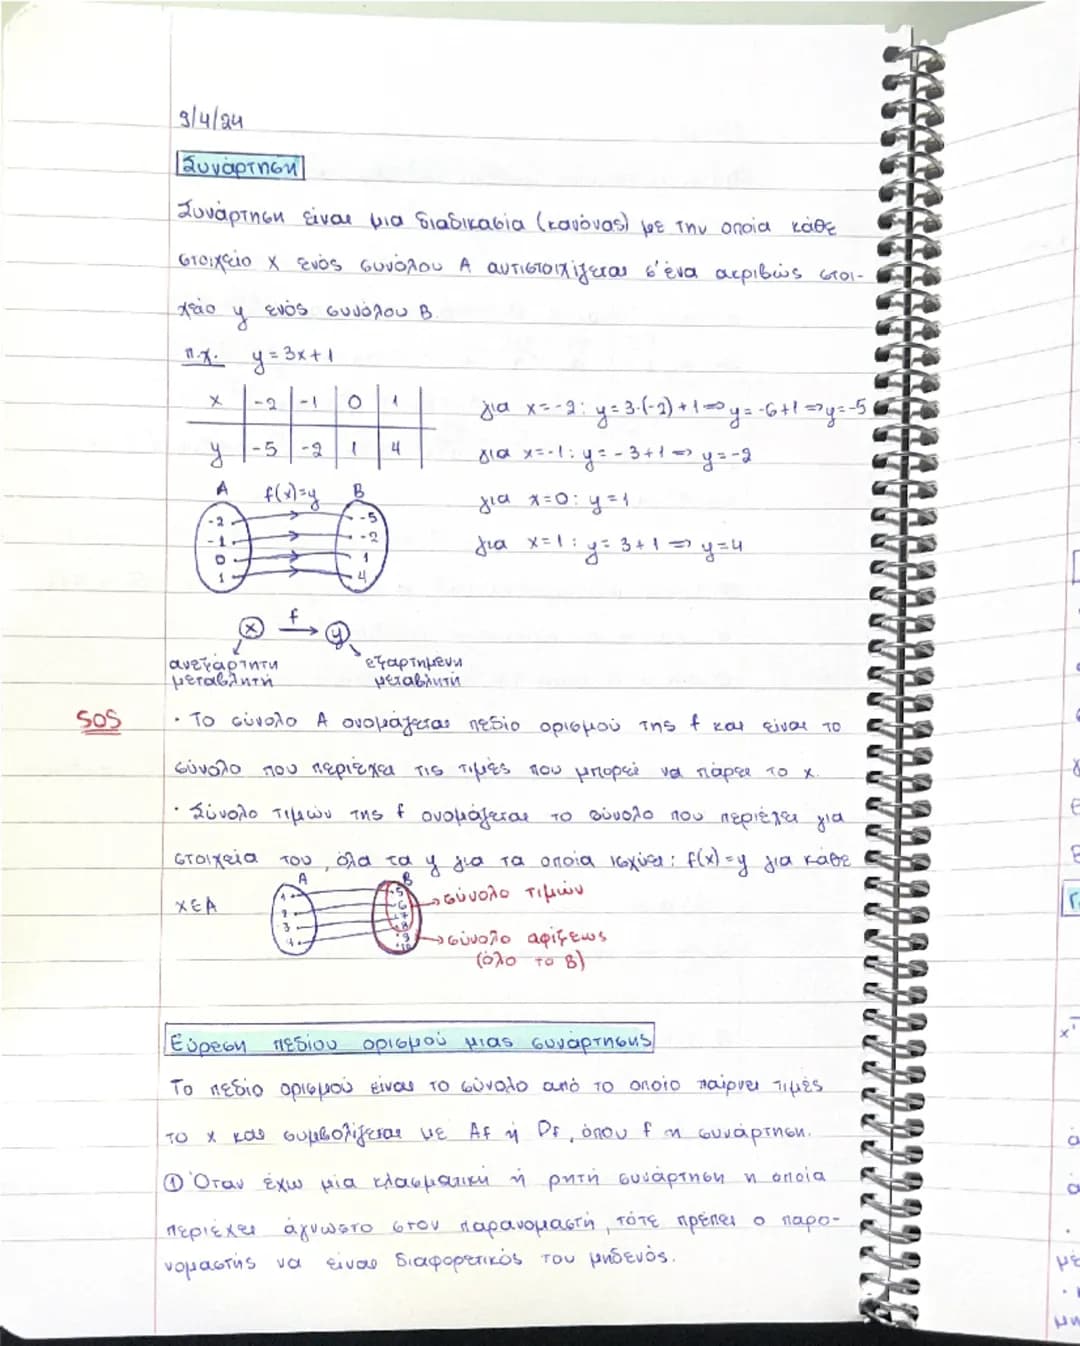 9/4/24
Συνάρτηση
Συνάρτηση είναι μια διαδικασία (κανόνας) με την οποία κάθε
στοιχείο x ενός συνόλου A αντιστοιχίζεται σ' ένα ακριβώς στοι-
χείο y ενός συνόλου B.
π.χ. y = 3x + 1
x | -2 | -1 | 0 | 1
y | -5 | -2 | 1 | 4
για x=-2: y=3·(-2)+1 ⇒ y=-6+1 ⇒ y=-5
για x=-1: y=-3+1 ⇒ y=-2
για x=0: y=1
για x=1: y=3+1 ⇒ y=4
A f(x)=y B
-2 -5
-1 -2
0 1
1 4
x f→ y
ανεξάρτητη εξαρτημένη
μεταβλητή μεταβλητή
SOS
· Το σύνολο A ονομάζεται πεδίο ορισμού της f και είναι το
σύνολο που περιέχει τις τιμές που μπορεί να πάρει το x.
· Σύνολο τιμών της f ονομάζεται το σύνολο που περιέχει για
στοιχεία του, όλα τα y για τα οποία ισχύει: f(x)=y για κάθε
x∈A
A B
1 5
2 6
3 7
4 8
9
10
→ σύνολο τιμών
→ σύνολο αφίξεως
(όλο το B)
Εύρεση πεδίου ορισμού μιας συνάρτησης
Το πεδίο ορισμού είναι το σύνολο από το οποίο παίρνει τιμές
το x και συμβολίζεται με Af ή Df, όπου f η συνάρτηση.
① Όταν έχω μία κλασματική ή ρητή συνάρτηση η οποία
περιέχει άγνωστο στον παρανομαστή, τότε πρέπει ο παρο-
νομαστής να είναι διαφορετικός του μηδενός.